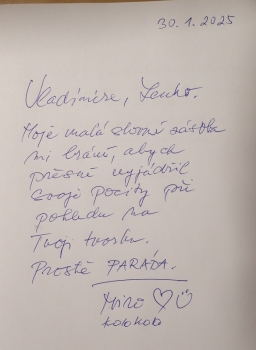 30.1.2025
Vladimíre, Lenko.
Moje malá slovní zásoba
mi brání, abych
přesně vyjádřil
svoje pocity při
pohledu na
Tvoji tvorbu.
Prostě PARÁDA.
Miro